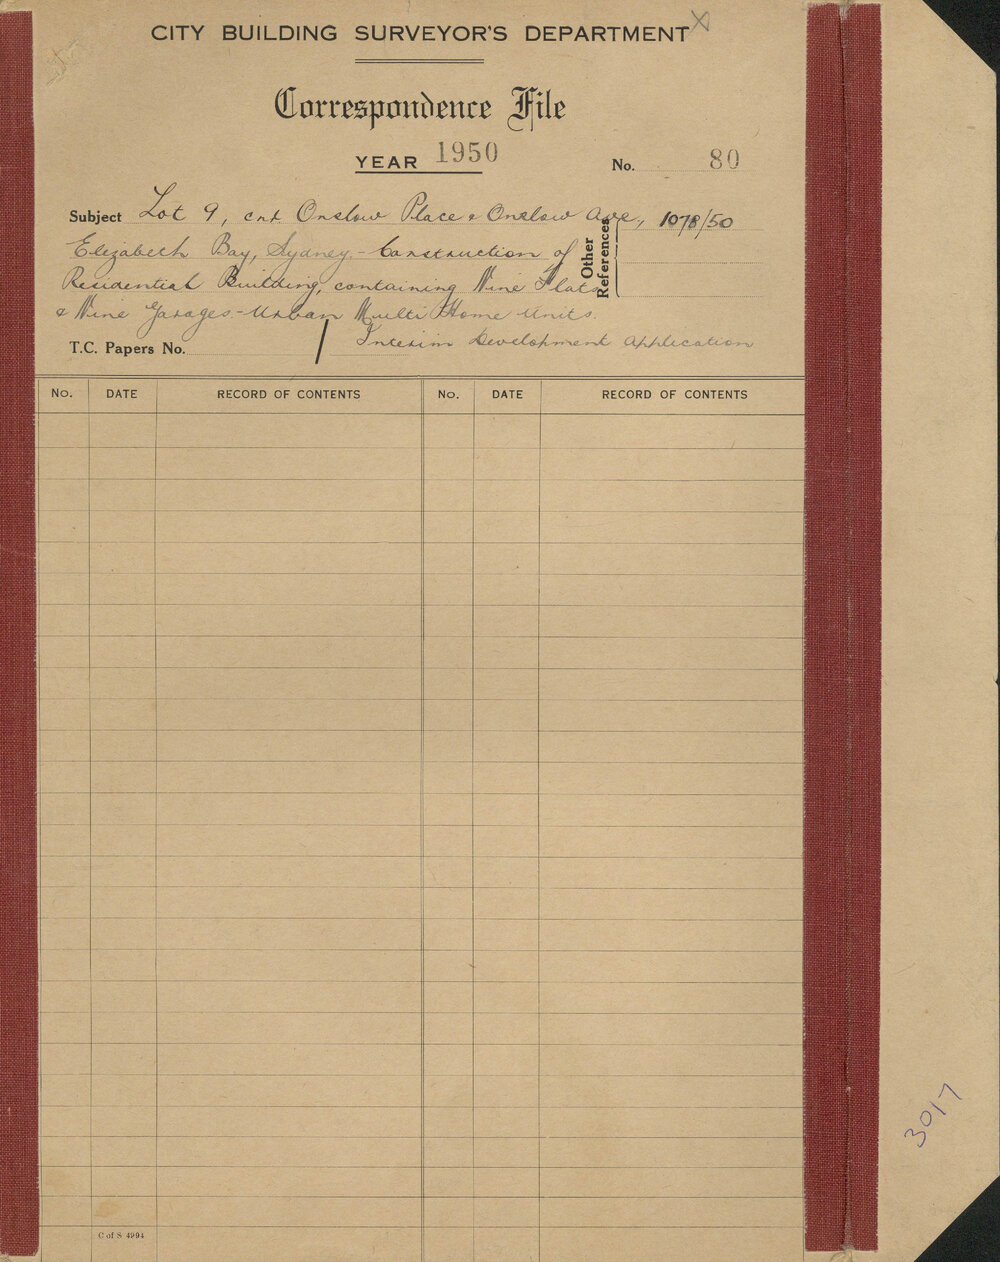 CITY BUILDING SURVEYOR'S DEPARTMENT X
Correspondence File
YEAR 1950
No. 80
Subject Lot 9, cnr Onslow Place & Onslow Ave.,
Elizabeth Bay, Sydney - Construction of
Residential Building, containing Nine Flats
& Nine Garages - Urban Multi Home Units.
Other References 1078/50
T.C. Papers No. / Interim Development Application
No. DATE RECORD OF CONTENTS No. DATE RECORD OF CONTENTS
3017
C of S 4994